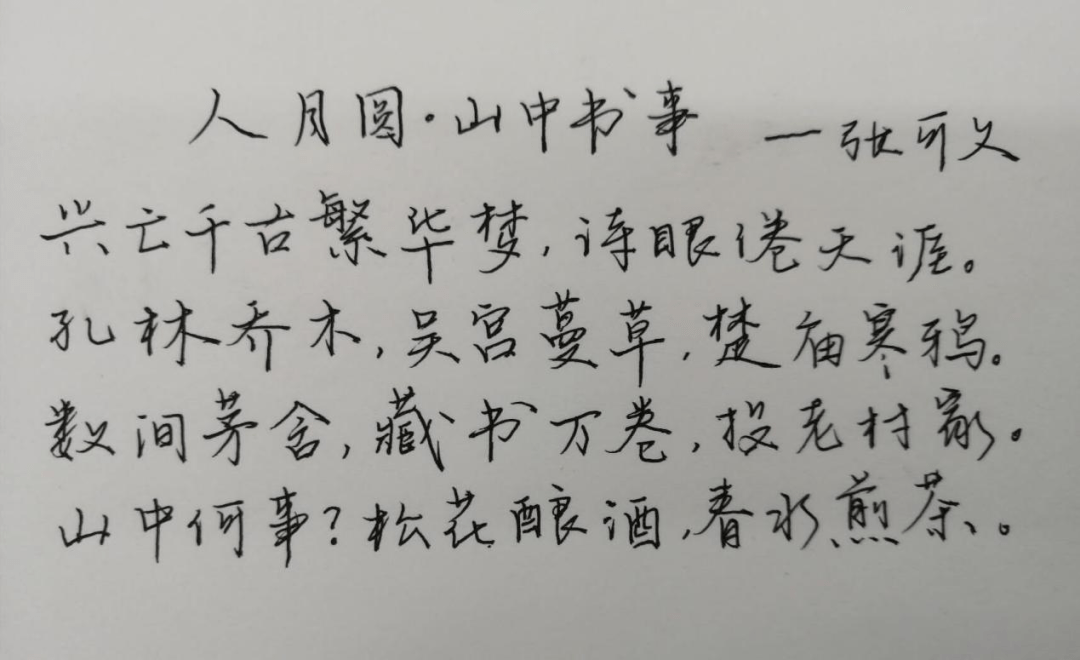 人月圆·山中书事 一张可义
兴亡千古繁华梦，诗眼倦天涯。
孔林乔木，吴宫蔓草，楚庙寒鸦。
数间茅舍，藏书万卷，投老村家。
山中何事？松花酿酒，春水煎茶。